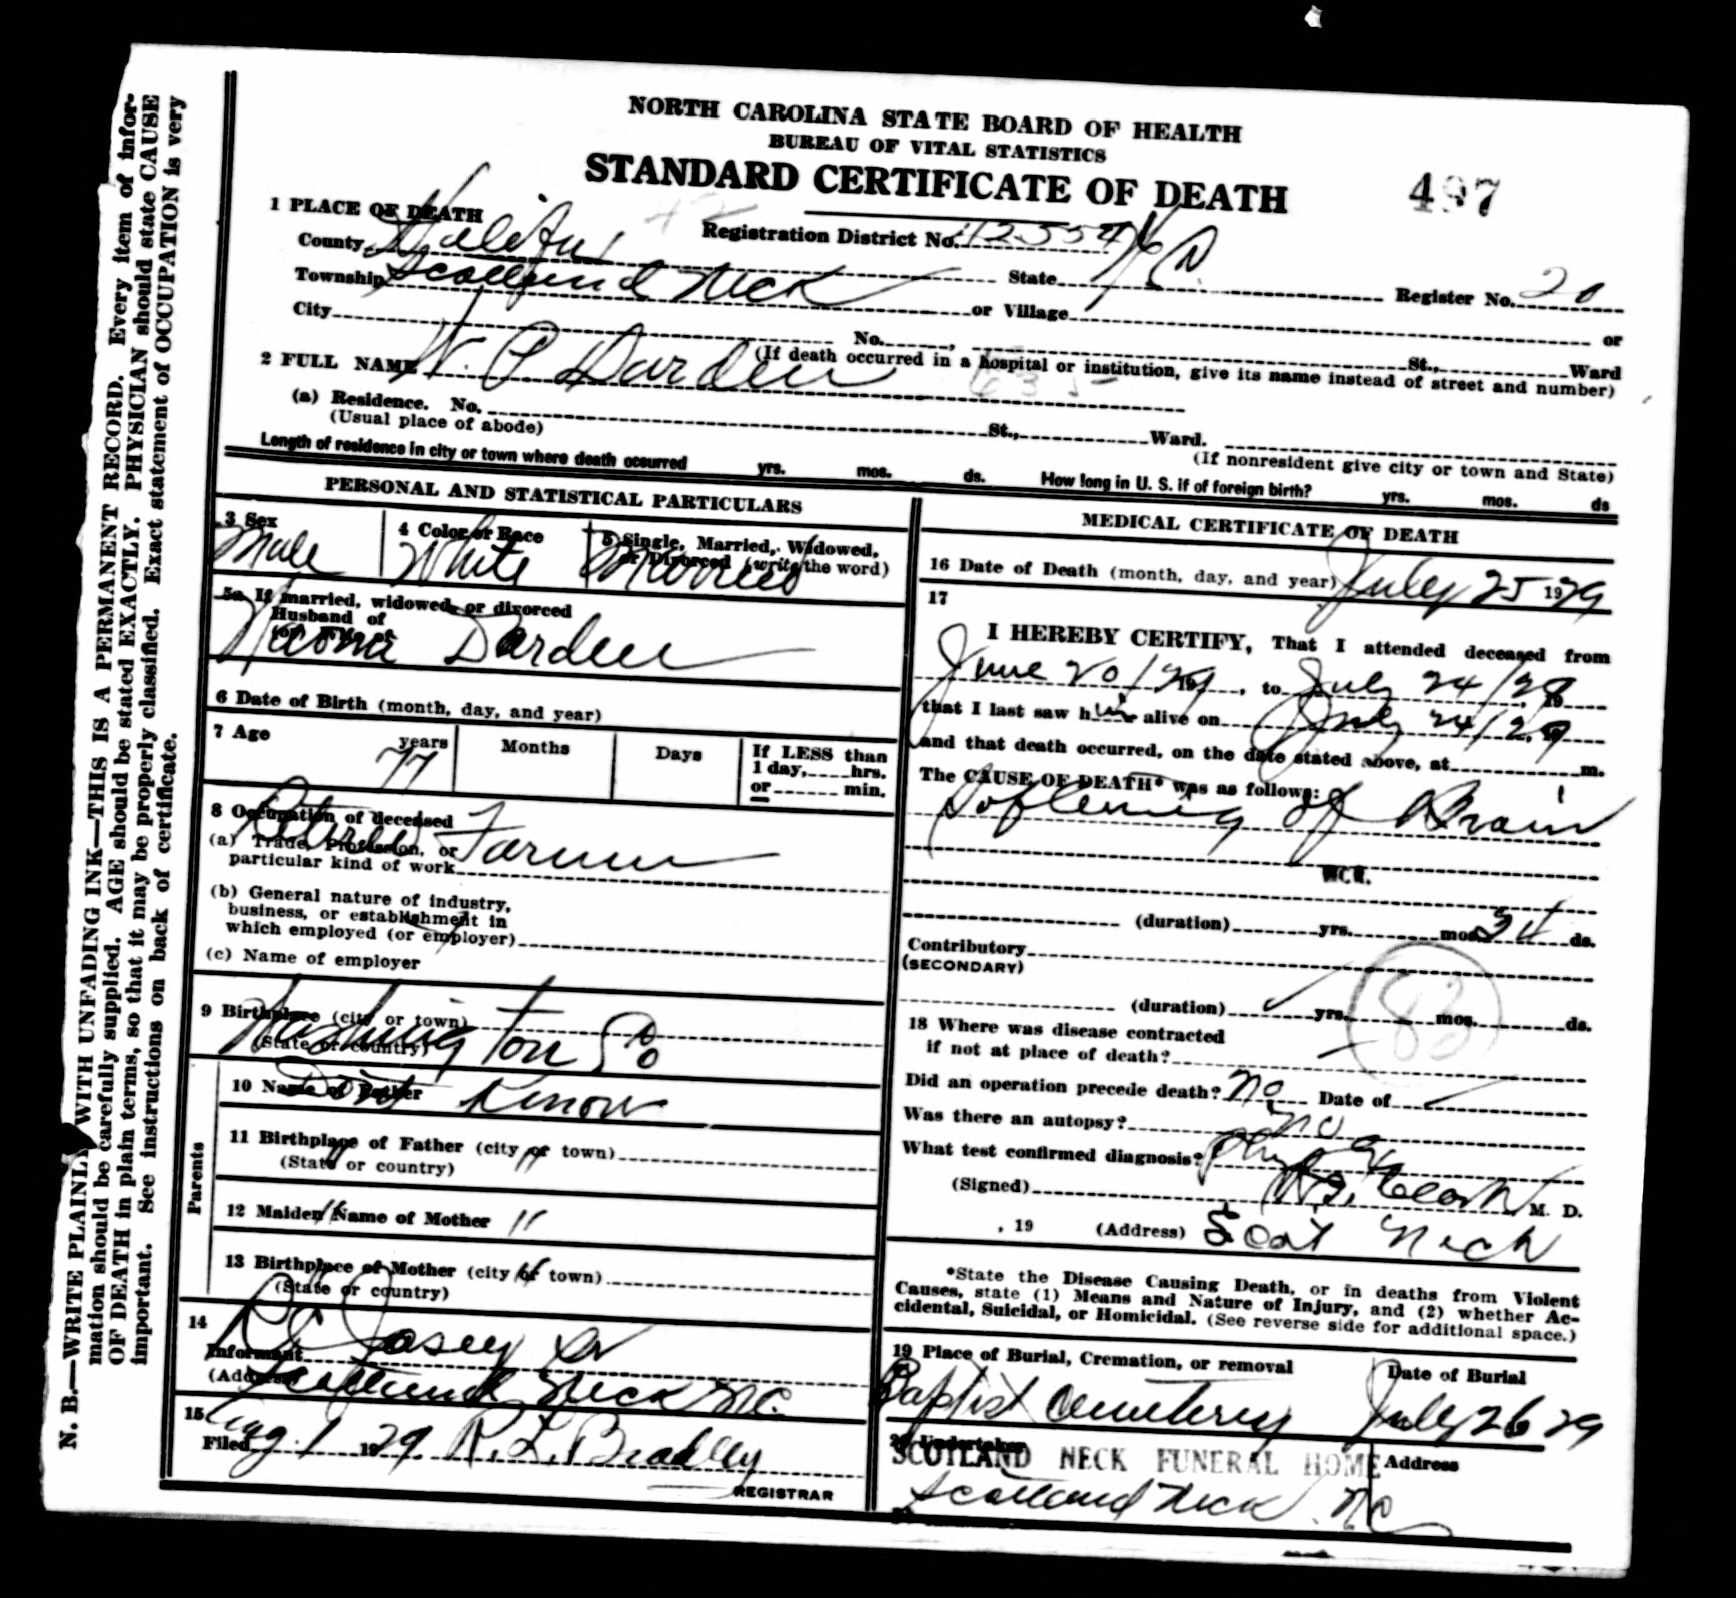 NORTH CAROLINA STATE BOARD OF HEALTH
BUREAU OF VITAL STATISTICS
STANDARD CERTIFICATE OF DEATH
497
1 PLACE OF DEATH
Registration District No.
County Halifax State N C Register No. 20
Township Scotland Neck or Village or
City No. , St., Ward
(If death occurred in a hospital or institution, give its name instead of street and number)
2 FULL NAME W. P Darden 635
(a) Residence. No. St., Ward.
(Usual place of abode) (If nonresident give city or town and State)
Length of residence in city or town where death occurred yrs. mos. ds. How long in U. S. if of foreign birth? yrs. mos. ds
PERSONAL AND STATISTICAL PARTICULARS
3 Sex 4 Color or Race 5 Single, Married, Widowed, or Divorced (write the word)
Male White Married
5a If married, widowed, or divorced
Husband of
(or) Wife of
Darden
6 Date of Birth (month, day, and year)
7 Age years Months Days If LESS than
77 1 day, hrs.
or min.
8 Occupation of deceased
(a) Trade, Profession, or
particular kind of work
Retired Farmer
(b) General nature of industry,
business, or establishment in
which employed (or employer)
(c) Name of employer
9 Birthplace (city or town)
(State or country)
Washington Co
Parents
10 Name of Father
Dont Know
11 Birthplace of Father (city or town) "
(State or country) "
12 Maiden Name of Mother " "
13 Birthplace of Mother (city or town) "
(State or country) "
14
Informant R C Josey Sr
(Address) Scotland Neck N.C.
15
Filed Aug 1 1929. R. L. Bradley
REGISTRAR
MEDICAL CERTIFICATE OF DEATH
16 Date of Death (month, day, and year) July 25 1929
17
I HEREBY CERTIFY, That I attended deceased from
June 20/29 19 , to July 24/29 , 19
that I last saw him alive on July 24/29
and that death occurred, on the date stated above, at m.
The CAUSE OF DEATH* was as follows:
Softening of Brain
(duration) yrs. mos. 34 ds.
Contributory
(SECONDARY)
(duration) yrs. mos. ds.
83
18 Where was disease contracted
if not at place of death?
Did an operation precede death? No Date of
Was there an autopsy? no
What test confirmed diagnosis?
(Signed) M. D.
, 19 (Address) Scot Neck
*State the Disease Causing Death, or in deaths from Violent
Causes, state (1) Means and Nature of Injury, and (2) whether Ac-
cidental, Suicidal, or Homicidal. (See reverse side for additional space.)
19 Place of Burial, Cremation, or removal Date of Burial
Baptist Cemetery July 26 29
20 Undertaker Address
SCOTLAND NECK FUNERAL HOME
Scotland Neck N C
N. B.—WRITE PLAINLY WITH UNFADING INK—THIS IS A PERMANENT RECORD. Every item of infor-
mation should be carefully supplied. AGE should be stated EXACTLY. PHYSICIAN should state CAUSE
OF DEATH in plain terms, so that it may be properly classified. Exact statement of OCCUPATION is very
important. See instructions on back of certificate.